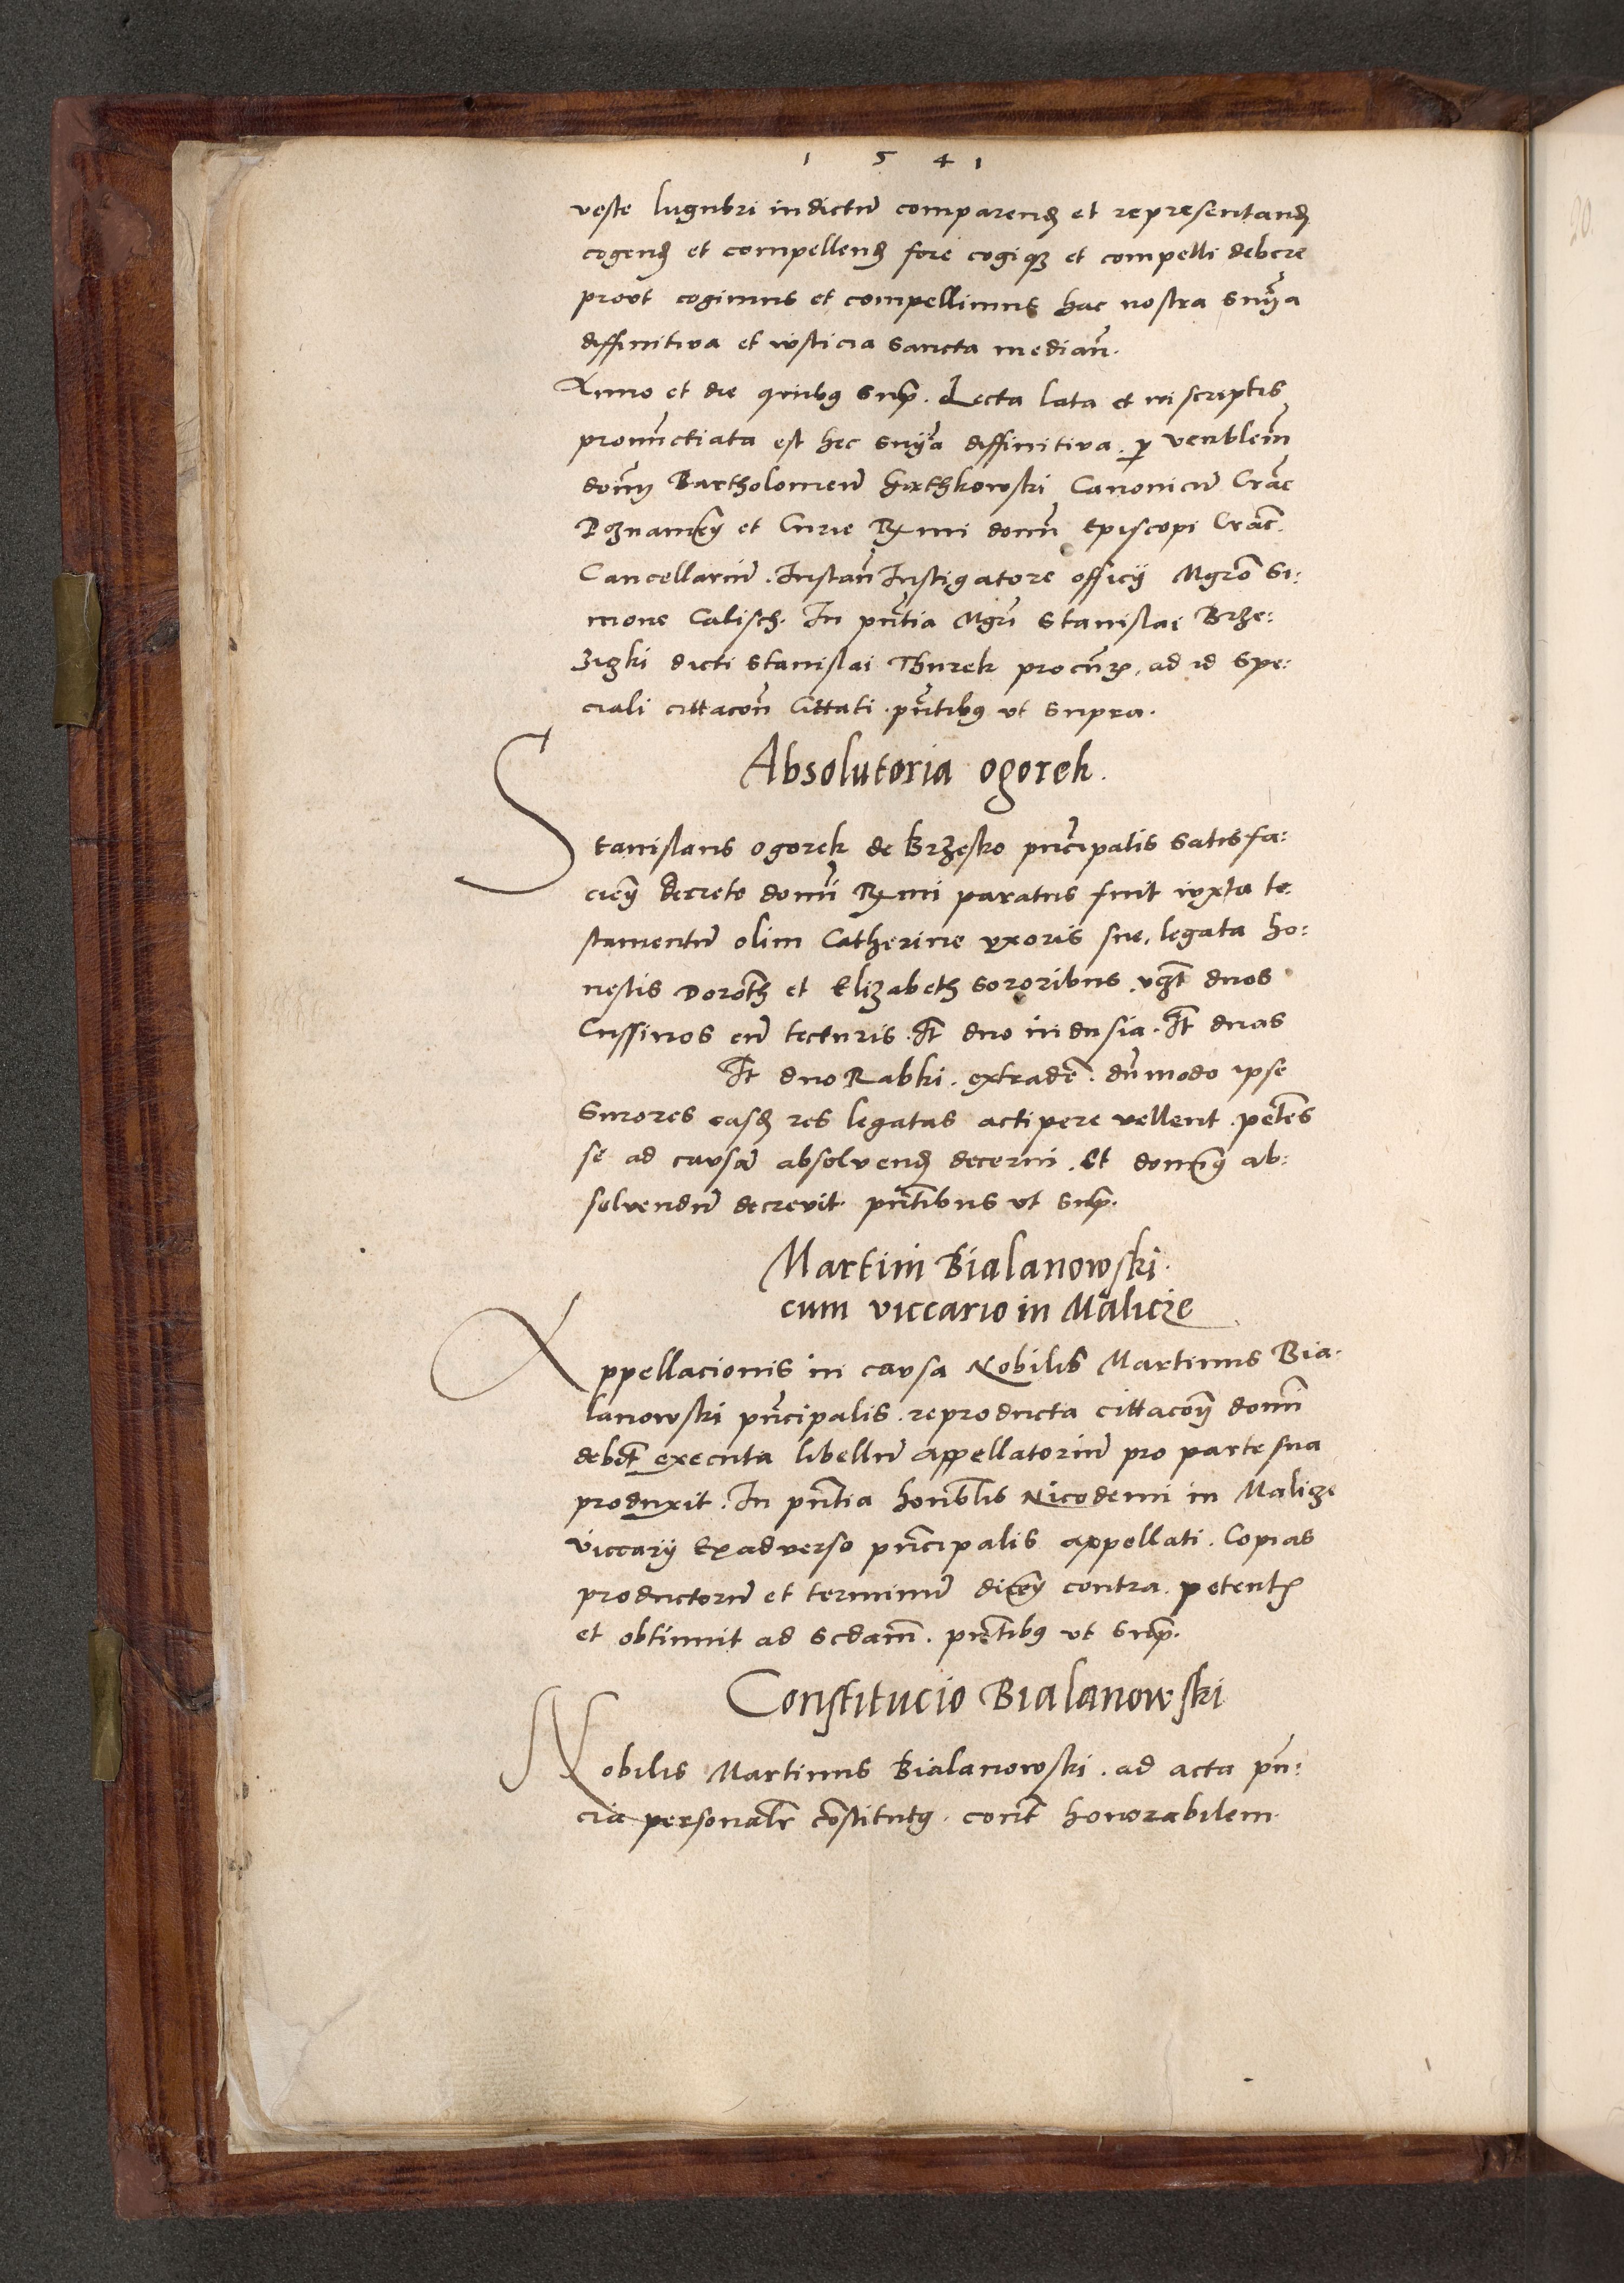 1 5 4 1
veste lugubri indictū comparenđ et representanđ
cogenđ et compellenđ fore cogiqꝫ et compelli debere
prout cogimus et compellimus hac nostra snīa
diffinitiva et iusticia sancta median̄.
Anno et die quibꝰ supͣ. Lecta lata et in scriptis
pronuntiata est hec snīa diffinitiva. ꝑ venblem̄
domū Bartholomeū Canonicū Crac̄
Poznanien̄ et Curie Rx̄mi domī Episcopi Crac̄.
Cancellariū. Instan̄ Instigatore officij Mgrō Si:
mone Calisch. In pn̄tia Mgrī Stanislai Brze:
zizki dicti Stanislai Thurek procur̄, ad id spe:
ciali cittacōn̄ Cittati. pn̄tibꝰ ut supra.
Absolutoria ogorek.
Stanislaus ogorek de Brzesko prīcipalis satisfa:
cien̄ decreto domī Rx̄mi paratus fuit iuxta te
stamentū olim Catherine uxoris sue, legata ho:
nestis Doroth̄ et Elizabeth sororibus vꝫt duos
Cussinos cū tecturis. It̄ duo indusia. It̄ duas
It̄ duo Rabki. extradē. dūmodo ipse
Surores easđ res legatas accipere vellent. petēs
se ad causā absolvenđ decerni. Et dominꝰ ab:
solvendū decrevit pn̄tibus ut supͣ.
Martini Bialanowski.
cum viccario in Malicze
Appellacionis in causa Nobilis Martinus Bia.
lanowski prīcipalis. reproducta cittacōn̄ domī
debt̄ executa libellū appellatoriū pro parte sua
produxit. In pn̄tia honblīs Nicodemi in Malicze
viccarij Ex adverso prīcipalis appellati. Copias
productorū et terminū dicen̄ contra. petentꝭ
et obtinuit ad scdam̄. pn̄tibꝰ ut supͣ.
Constitucio Bialanowski
Nobilis Martinus Bialanowski. ad acta pn̄:
cia personalr̄ cōstitutꝰ. cont̄ honorabilem